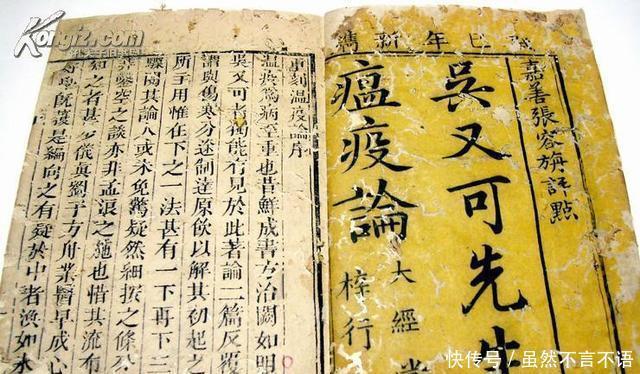 巳年新鐫
嘉善張容旃點
吳又可先生
瘟疫論
大經
梓行
重刻溫疫論序
溫疫為病至重也昔鮮成書方治闕如明
吳又可者獨能有見於此著論二篇反覆
謂與傷寒分途制達原飲以解其初起之
所主用惟在下之一法甚有一下再下三
驟閱其論人或未免驚疑然細按之條分
非鑿空之談亦非孟浪之施也惜其流有
知之者甚少儀真劉子方舟業醫早成心
既穫是編向之有疑於中者渙如水
Kongfz.com
快传号／虽然不言不语